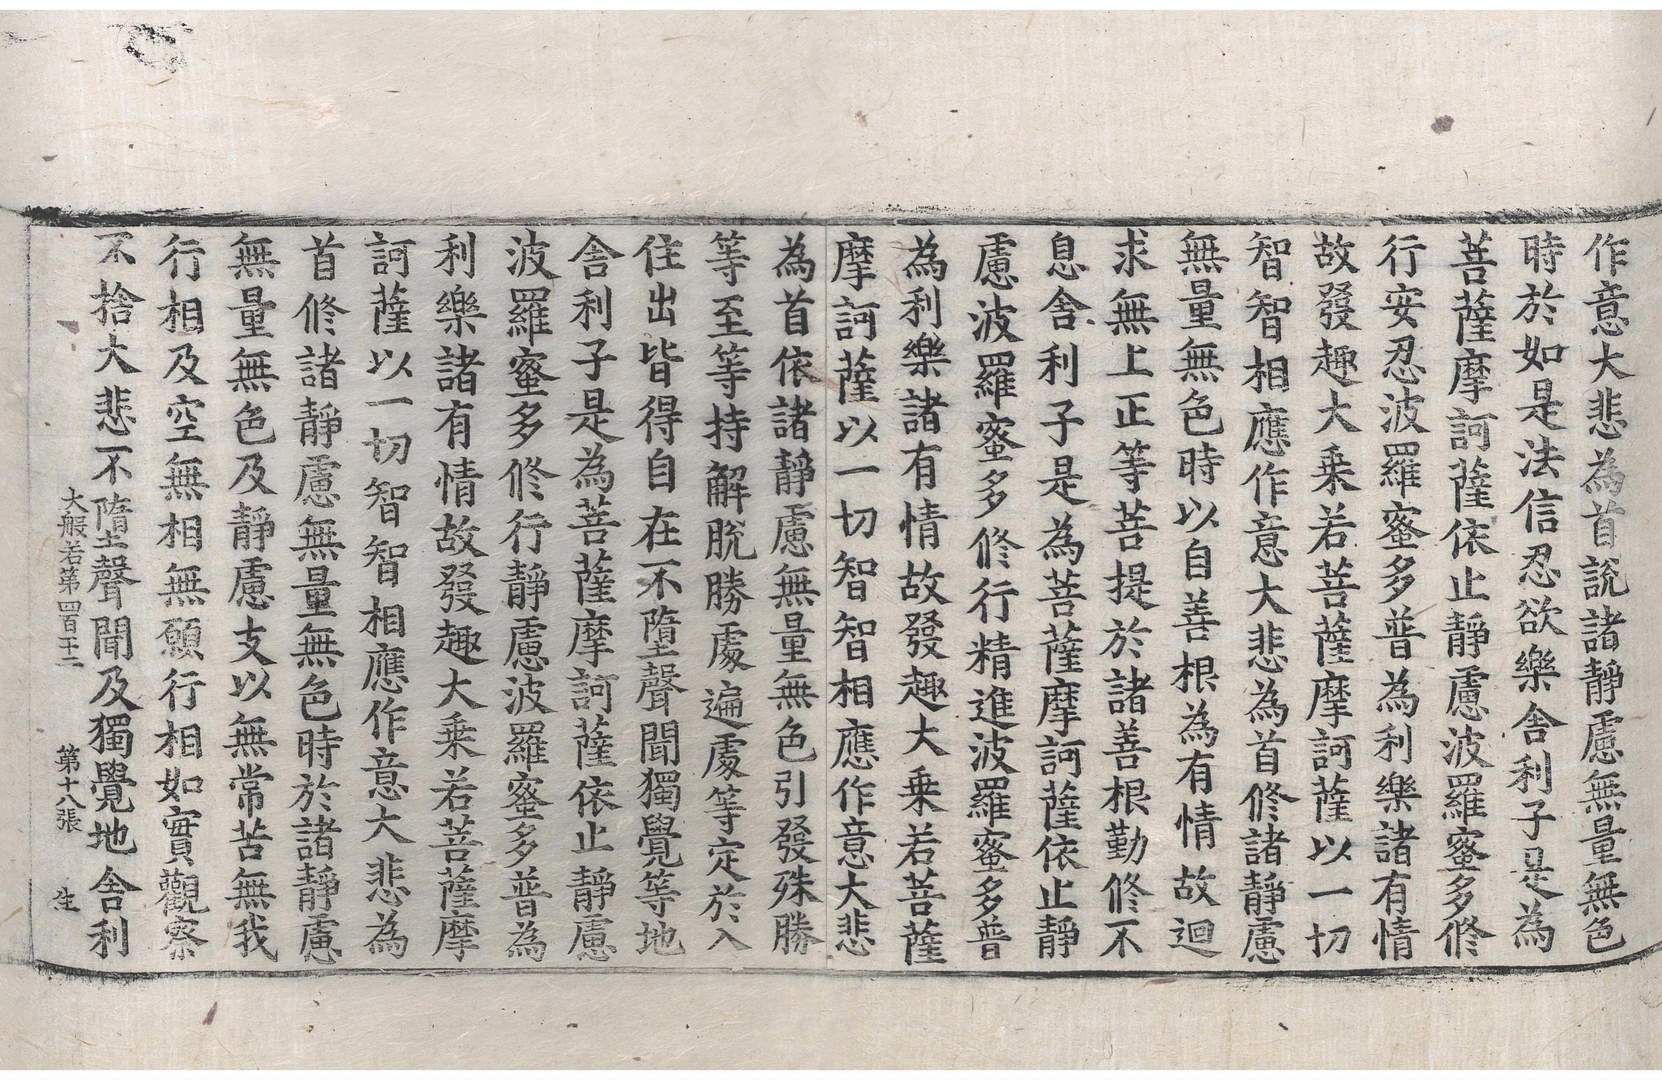 作意大悲為首說諸靜慮無量無色
時於如是法信忍欲樂舍利子是為
菩薩摩訶薩依止靜慮波羅蜜多修
行安忍波羅蜜多普為利樂諸有情
故發趣大乗若菩薩摩訶薩以一切
智智相應作意大悲為首修諸靜慮
無量無色時以自善根為有情故迴
求無上正等菩提於諸善根勤修不
息舍利子是為菩薩摩訶薩依止靜
慮波羅蜜多修行精進波羅蜜多普
為利樂諸有情故發趣大乗若菩薩
摩訶薩以一切智智相應作意大悲
為首依諸靜慮無量無色引發殊勝
等至等持解脫勝處遍處等定於入
住出皆得自在不墮聲聞獨覺等地
舍利子是為菩薩摩訶薩依止靜慮
波羅蜜多修行靜慮波羅蜜多普為
利樂諸有情故發趣大乗若菩薩摩
訶薩以一切智智相應作意大悲為
首修諸靜慮無量無色時於諸靜慮
無量無色及靜慮支以無常苦無我
行相及空無相無願行相如實觀察
不捨大悲不墮聲聞及獨覺地舍利
大般若第四百十二 第十八張 生